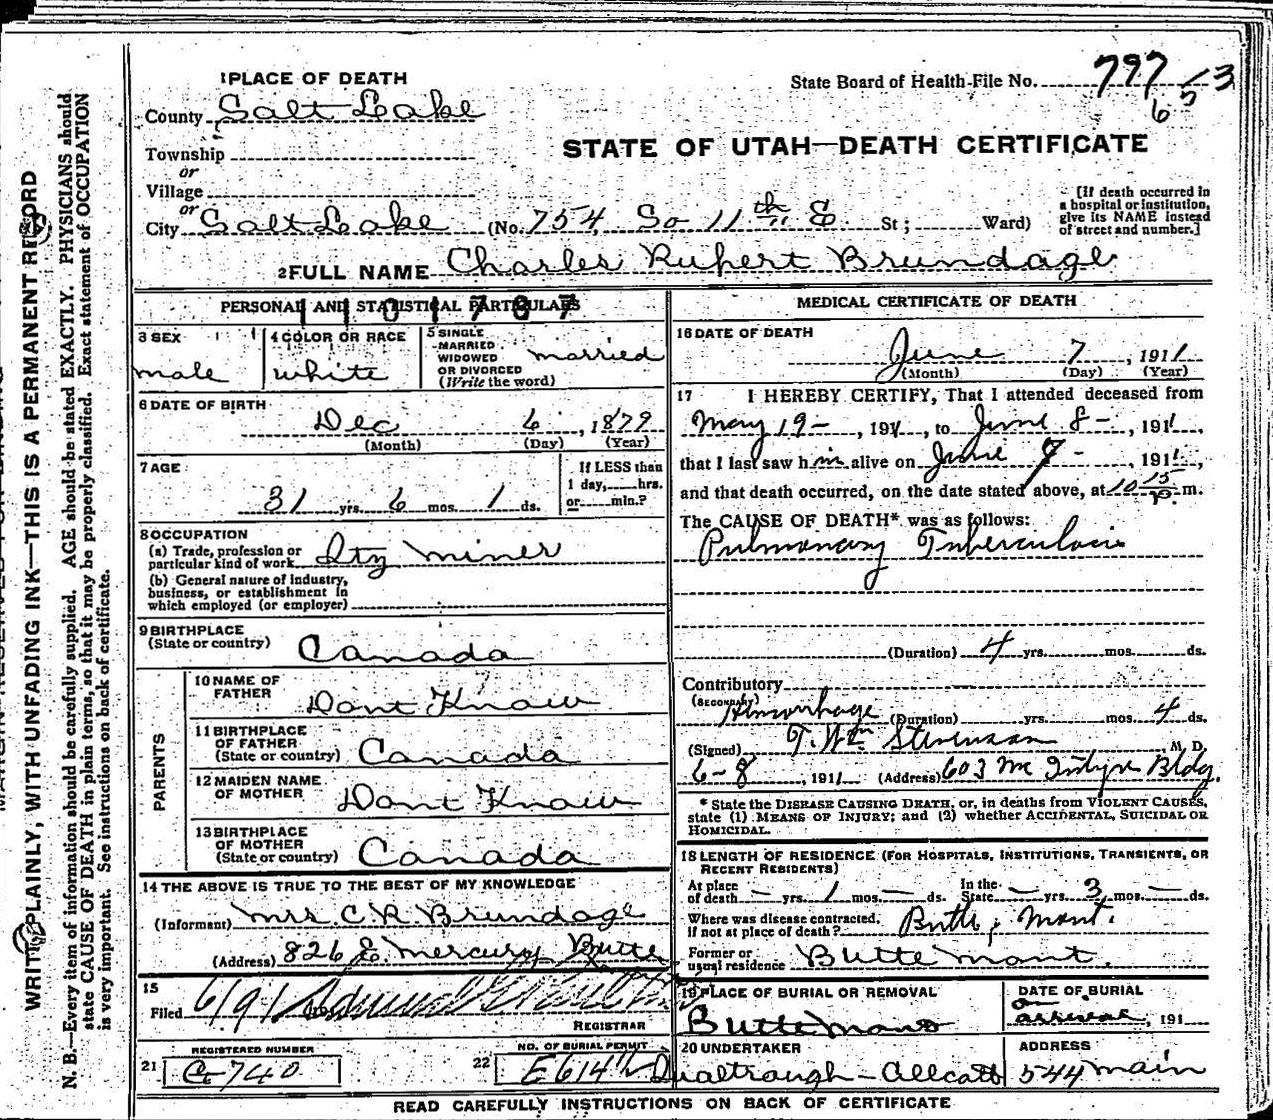 1 PLACE OF DEATH
State Board of Health-File No. 797
653
County Salt Lake
STATE OF UTAH—DEATH CERTIFICATE
Township
or
Village
or
City Salt Lake (No. 754 So 11th E St; Ward)
[If death occurred in a hospital or institution, give its NAME instead of street and number.]
2 FULL NAME Charles Rupert Brundage
PERSONAL AND STATISTICAL PARTICULARS
3 SEX
male
4 COLOR OR RACE
white
5 SINGLE
MARRIED
WIDOWED
OR DIVORCED
(Write the word)
married
6 DATE OF BIRTH
Dec 6, 1879
(Month) (Day) (Year)
7 AGE
31 yrs. 6 mos. 1 ds.
If LESS than
1 day, hrs.
or min.?
8 OCCUPATION
(a) Trade, profession or
particular kind of work miner
(b) General nature of industry,
business, or establishment in
which employed (or employer)
9 BIRTHPLACE
(State or country) Canada
PARENTS
10 NAME OF
FATHER Dont Know
11 BIRTHPLACE
OF FATHER
(State or country) Canada
12 MAIDEN NAME
OF MOTHER Dont Know
13 BIRTHPLACE
OF MOTHER
(State or country) Canada
14 THE ABOVE IS TRUE TO THE BEST OF MY KNOWLEDGE
(Informant) Mrs. C R Brundage
(Address) 826 E. Mercury Butte
15
Filed 6/9 1
REGISTRAR
REGISTERED NUMBER
21 C-740
NO. OF BURIAL PERMIT
22 E614
MEDICAL CERTIFICATE OF DEATH
16 DATE OF DEATH
June 7, 1911
(Month) (Day) (Year)
17 I HEREBY CERTIFY, That I attended deceased from
May 19-, 191, to June 8-, 1911,
that I last saw him alive on June 7-, 1911,
and that death occurred, on the date stated above, at 10 15 p. m.
The CAUSE OF DEATH* was as follows:
Pulmonary Tuberculosis
(Duration) 4 yrs. mos. ds.
Contributory
(SECONDARY)
Hemorrhage (Duration) yrs. mos. 4 ds.
(Signed) T. Wm Stevenson, M. D.
6-8, 1911 (Address) 603 McIntyre Bldg.
* State the DISEASE CAUSING DEATH, or, in deaths from VIOLENT CAUSES,
state (1) MEANS OF INJURY; and (2) whether ACCIDENTAL, SUICIDAL OR
HOMICIDAL.
18 LENGTH OF RESIDENCE (FOR HOSPITALS, INSTITUTIONS, TRANSIENTS, OR
RECENT RESIDENTS)
At place
of death — yrs. 1 mos. — ds. In the
State — yrs. 3 mos. — ds.
Where was disease contracted,
if not at place of death? Butte, Mont.
Former or
usual residence Butte Mont.
19 PLACE OF BURIAL OR REMOVAL
Butte Mont
DATE OF BURIAL
on arrival, 191
20 UNDERTAKER
ADDRESS
544 Main
READ CAREFULLY INSTRUCTIONS ON BACK OF CERTIFICATE
WRITE PLAINLY, WITH UNFADING INK—THIS IS A PERMANENT RECORD
N. B.—Every item of information should be carefully supplied. AGE should be stated EXACTLY. PHYSICIANS should
state CAUSE OF DEATH in plain terms, so that it may be properly classified. Exact statement of OCCUPATION
is very important. See instructions on back of certificate.